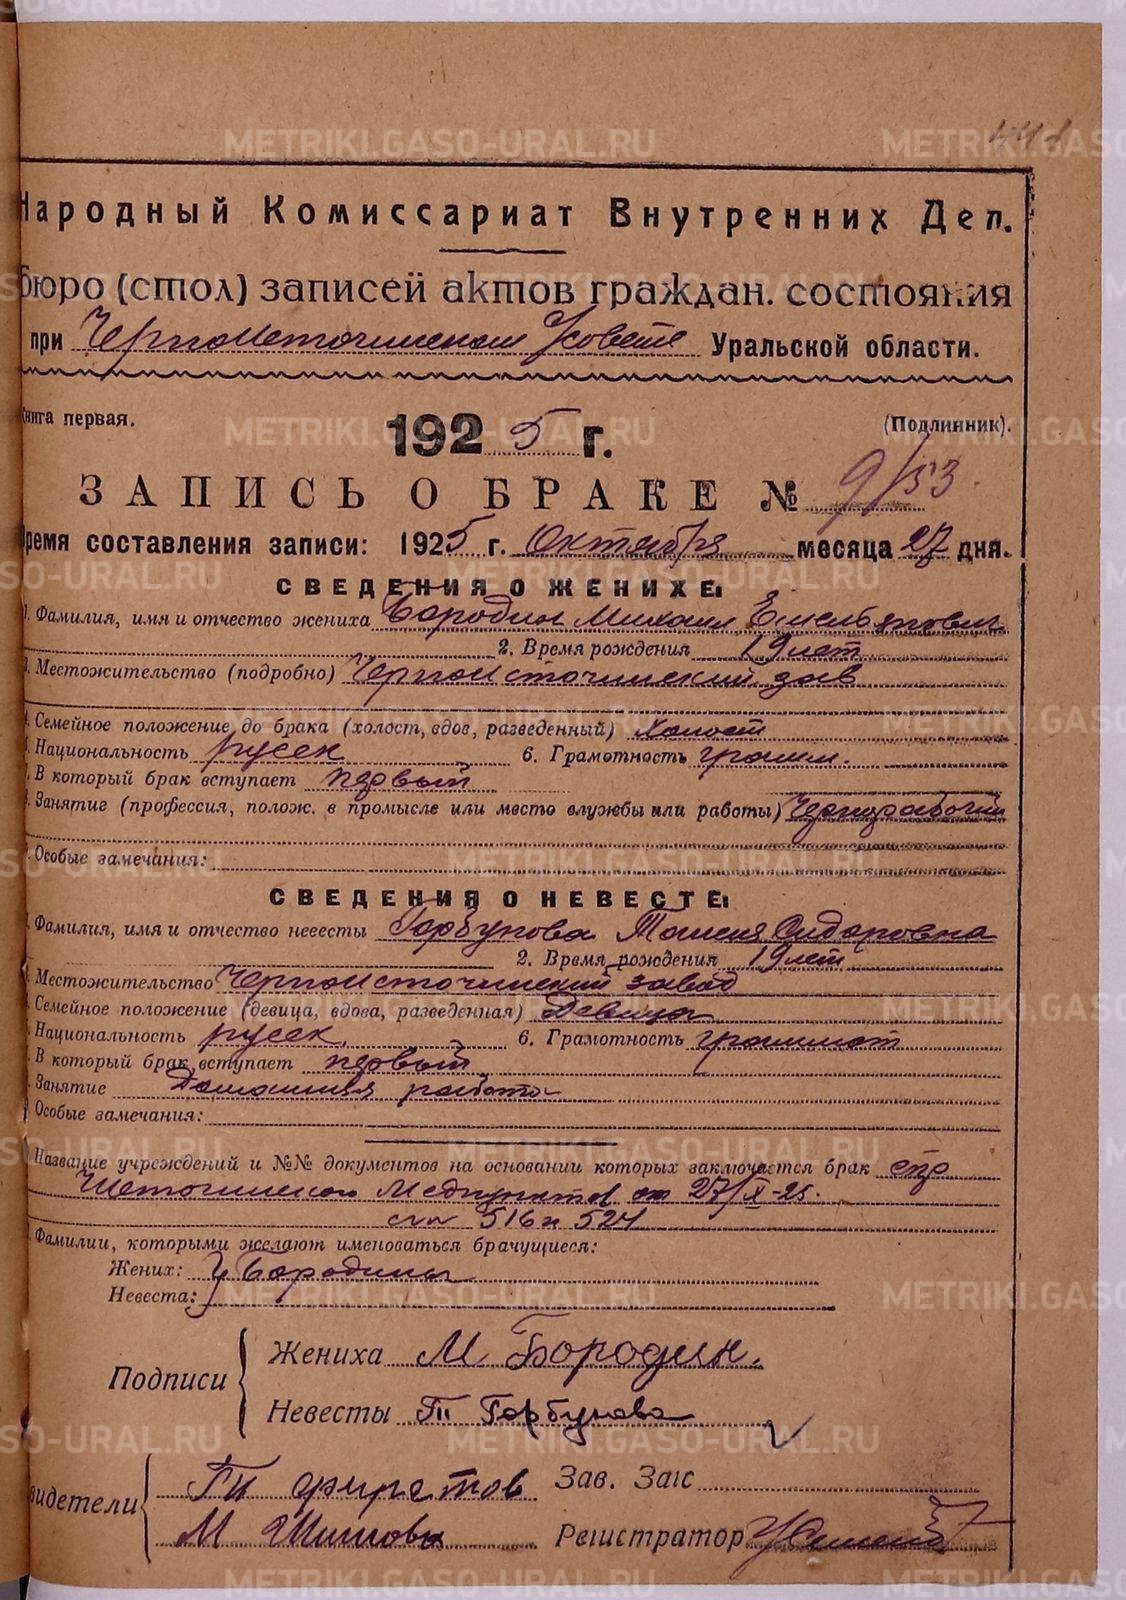 441
Народный Комиссариат Внутренних Дел.
бюро (стол) записей актов граждан. состояния
при Черноисточинском Усовете Уральской области.
Книга первая. (Подлинник).
1925 г.
ЗАПИСЬ О БРАКЕ № 9/53
Время составления записи: 1925 г. Октября месяца 27 дня.
СВЕДЕНИЯ О ЖЕНИХЕ:
1. Фамилия, имя и отчество жениха Бородин Михаил Емельянович
2. Время рождения 19 лет
3. Местожительство (подробно) Черноисточинский зав
4. Семейное положение до брака (холост, вдов, разведенный) Холост
5. Национальность русск 6. Грамотность грамм.
7. В который брак вступает первый
8. Занятие (профессия, полож. в промысле или место службы или работы) Чернорабочий
Особые замечания:
СВЕДЕНИЯ О НЕВЕСТЕ:
Фамилия, имя и отчество невесты Горбунова Таисия Сидоровна
2. Время рождения 19 лет
Местожительство Черноисточинский завод
Семейное положение (девица, вдова, разведенная) Девица
Национальность русск. 6. Грамотность грамот
В который брак вступает первый
Занятие Домашняя работа
Особые замечания:
Название учреждений и №№ документов на основании которых заключается брак спр
Источинского Медпункта от 27/X-25.
516 и 524
Фамилии, которыми желают именоваться брачущиеся:
Жених: } Бородины
Невеста:
Подписи
Жениха М Бородин.
Невесты Т Горбунова
Свидетели
Зав. Загс
М Шитова
Регистратор
METRIKI.GASO-URAL.RU